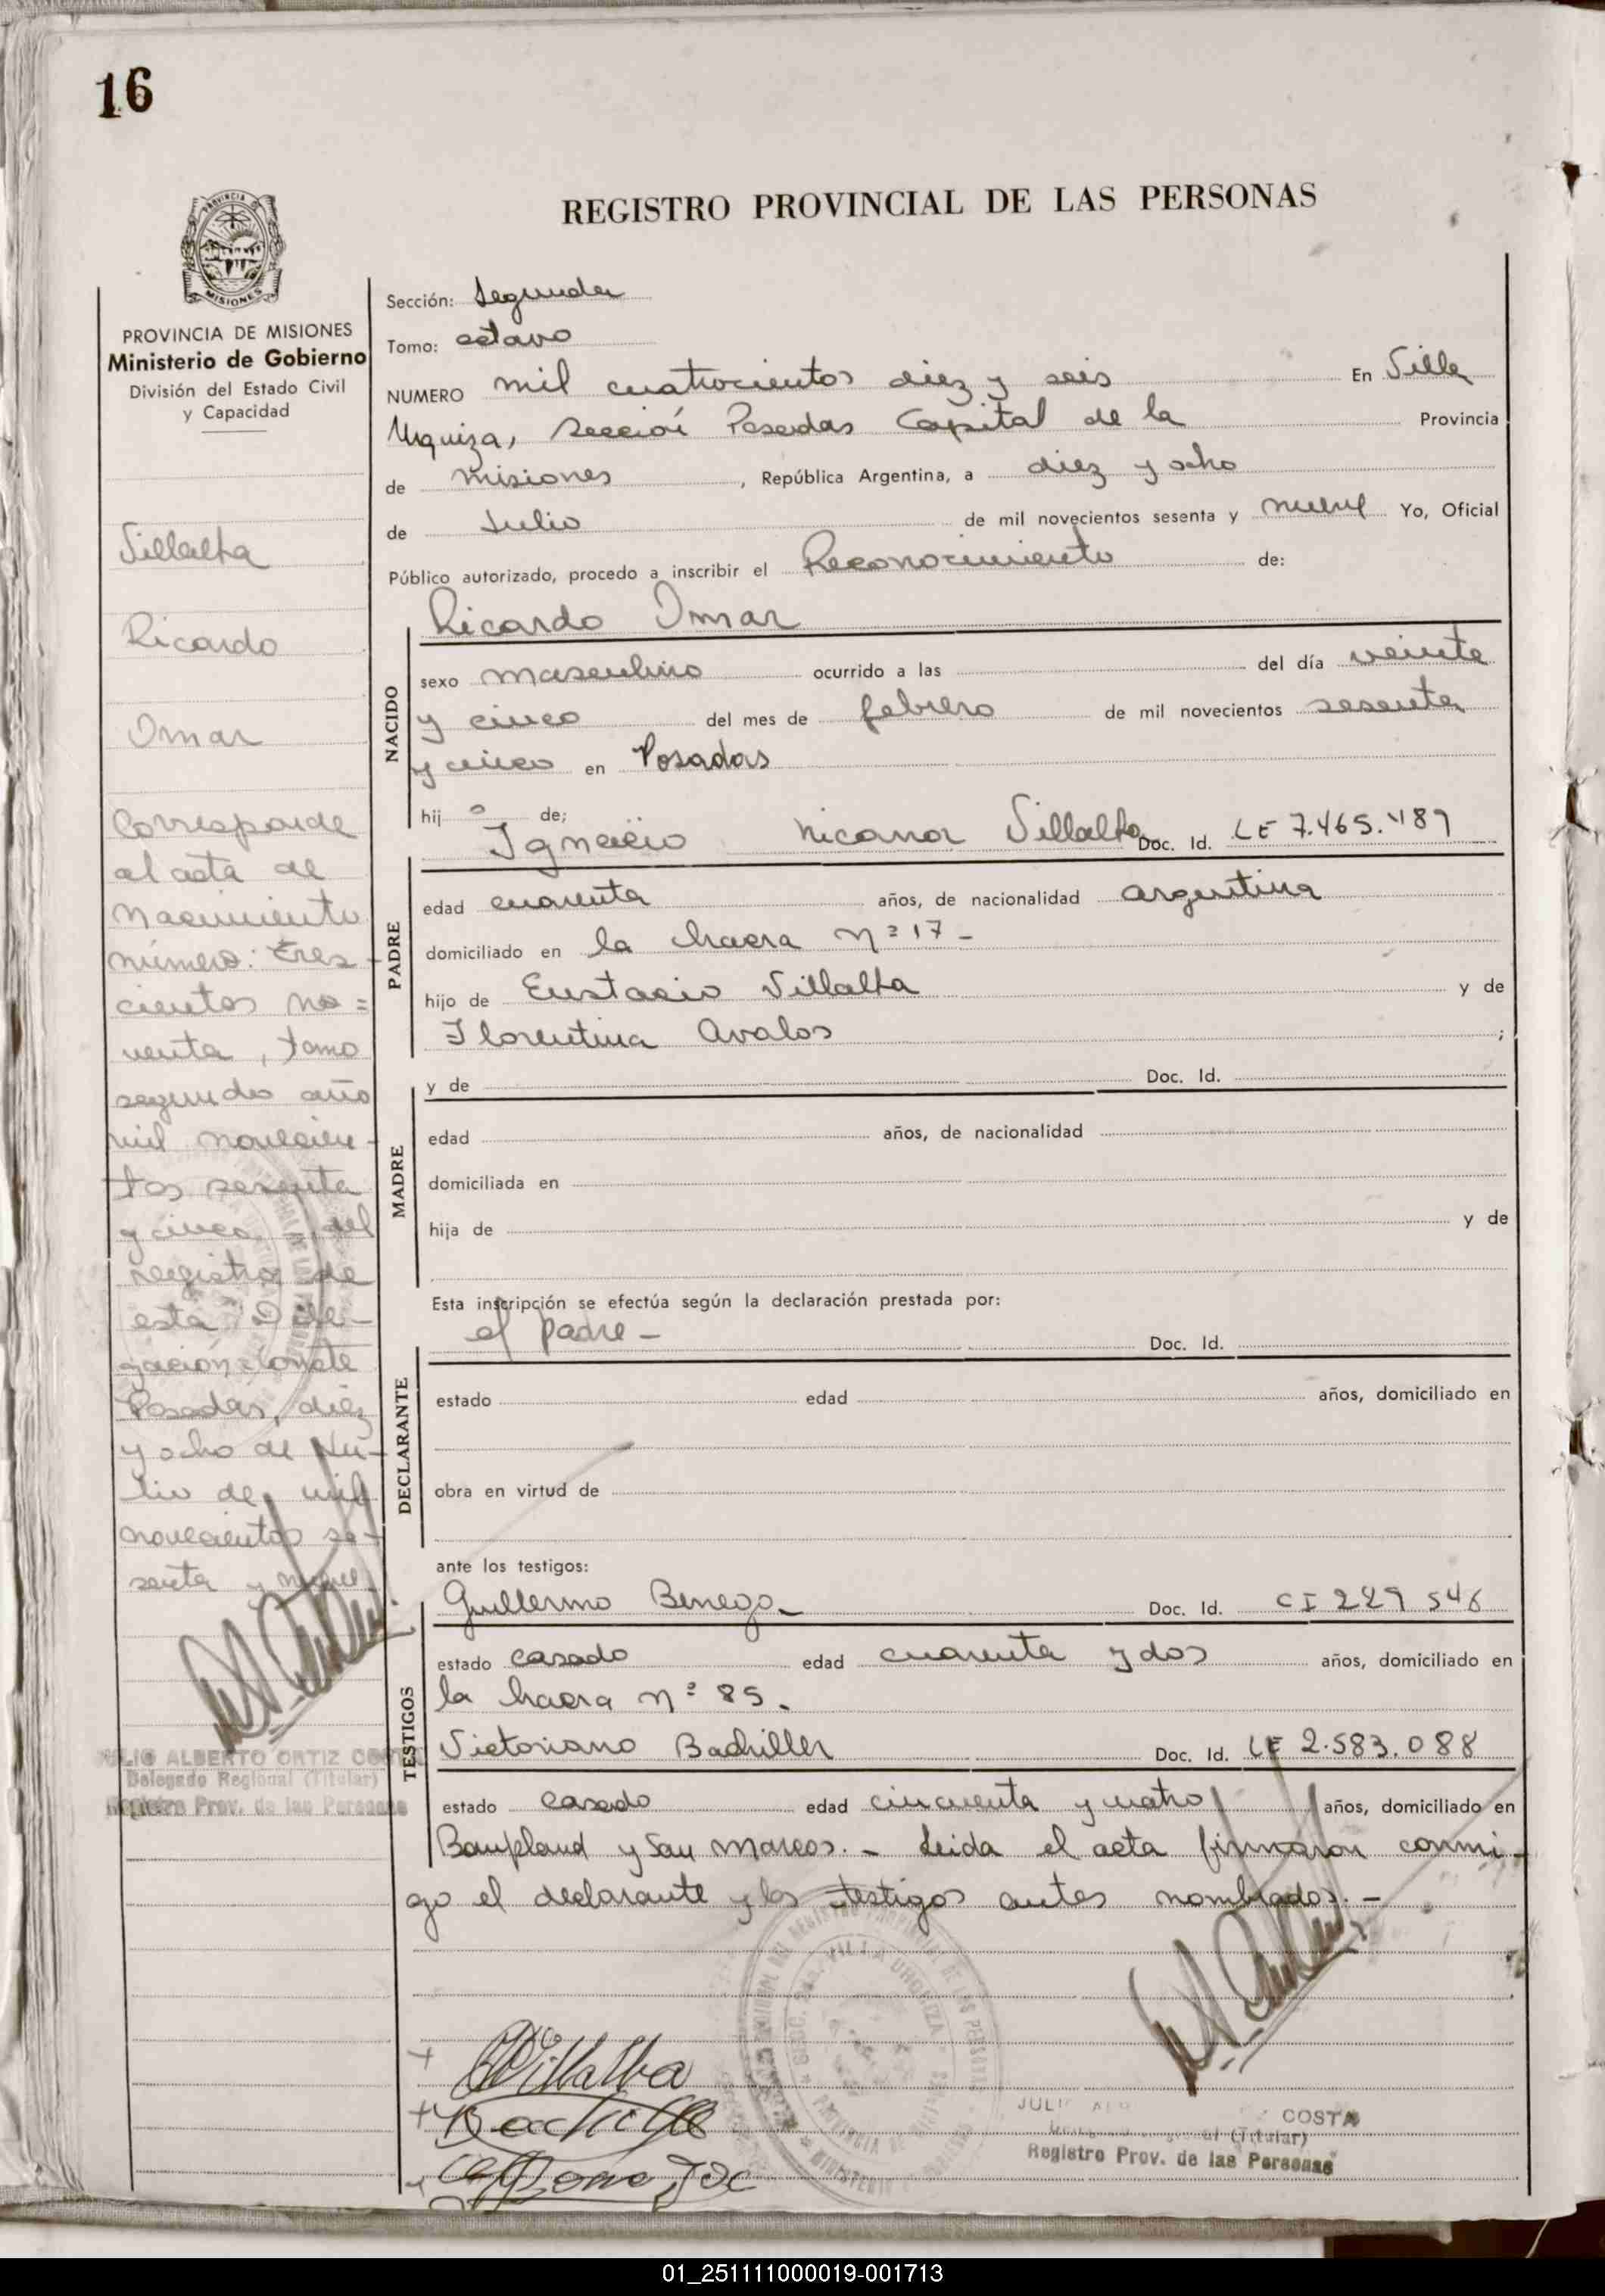 16
REGISTRO PROVINCIAL DE LAS PERSONAS
PROVINCIA DE MISIONES
MISIONES
PROVINCIA DE MISIONES
Ministerio de Gobierno
División del Estado Civil
y Capacidad
Villalba
Ricardo
Omar
Corresponde
al acta de
Nacimiento
número: tres-
cientos no=
venta, tomo
segundo año
mil novecien-
tos sesenta
y cinco, del
registro de
esta Dele-
gación, conste
Posadas, diez
y ocho de Ju-
lio de mil
novecientos se-
senta y nueve.
JULIO ALBERTO ORTIZ COSTA
Delegado Regional (Titular)
Registro Prov. de las Personas
Sección: Segunda
Tomo: octavo
NUMERO mil cuatrocientos diez y seis En Villa
Urquiza, Sección Posadas Capital de la Provincia
de Misiones, República Argentina, a diez y ocho
de Julio de mil novecientos sesenta y nueve Yo, Oficial
Público autorizado, procedo a inscribir el Reconocimiento de:
Ricardo Omar
NACIDO
sexo masculino ocurrido a las del día veinte
y cinco del mes de febrero de mil novecientos sesenta
y cinco en Posadas
hijo de;
Ignacio Nicanor Villalba Doc. Id. LE 7.465.489
PADRE
edad cuarenta años, de nacionalidad argentina
domiciliado en la chacra nº 17-
hijo de Eustacio Villalba y de
Florentina Avalos ;
MADRE
y de Doc. Id.
edad años, de nacionalidad
domiciliada en
hija de y de
Esta inscripción se efectúa según la declaración prestada por:
el padre- Doc. Id.
DECLARANTE
estado edad años, domiciliado en
obra en virtud de
ante los testigos:
Guillermo Doc. Id. CI 229 546
TESTIGOS
estado casado edad cuarenta y dos años, domiciliado en
la chacra nº 85.
Victoriano Bachiller Doc. Id. LE 2.583.088
estado casado edad cincuenta y cuatro años, domiciliado en
Bonpland y San Marcos.- Leida el acta firmaron conmi-
go el declarante y los testigos antes nombrados.-
Villalba
COSTA
(Titular)
Registro Prov. de las Personas
01_251111000019-001713